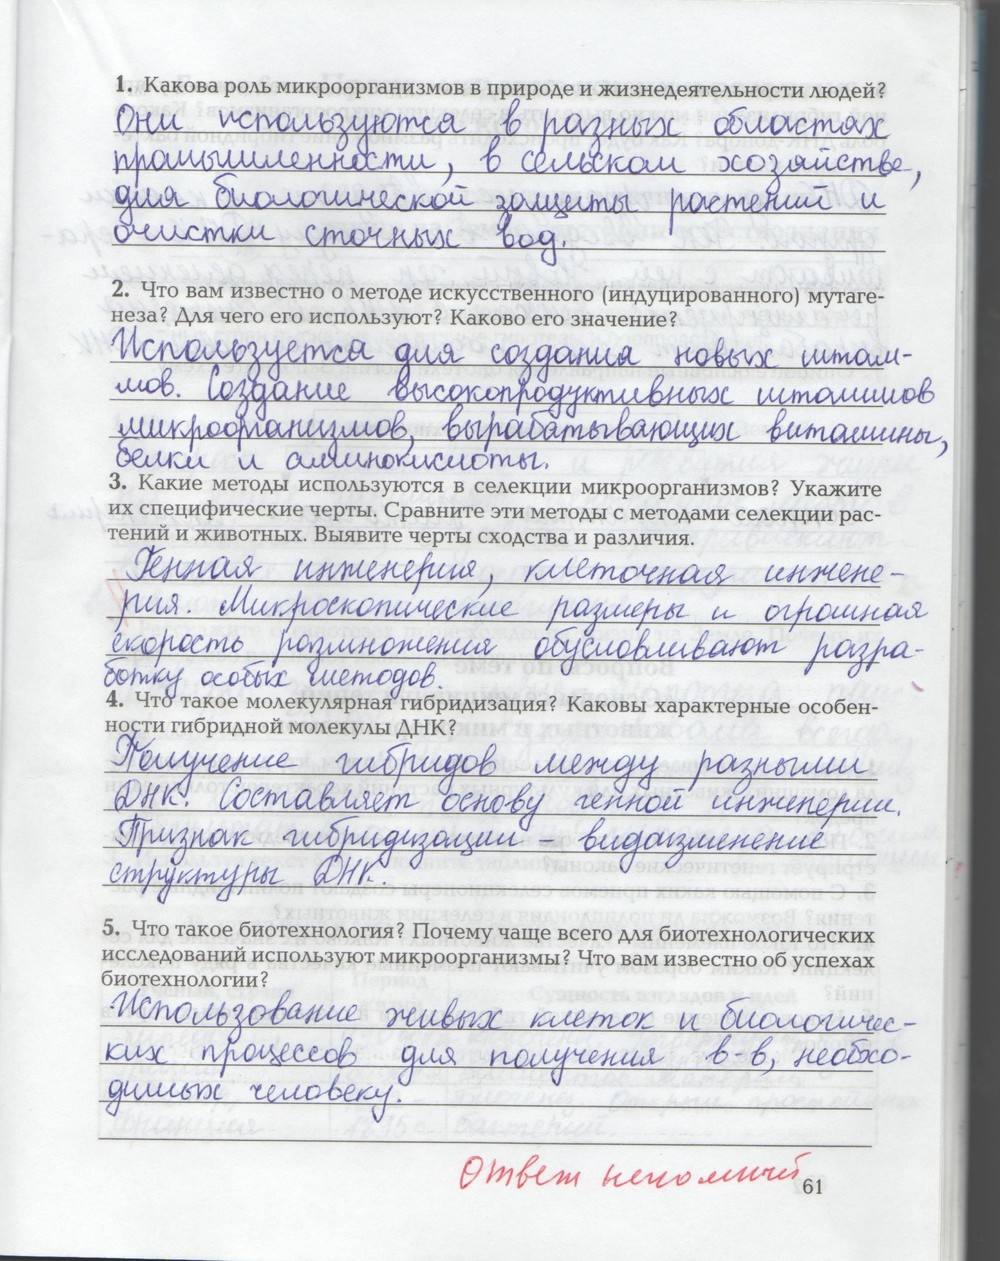 1. Какова роль микроорганизмов в природе и жизнедеятельности людей?
Они используются в разных областях
промышленности, в сельском хозяйстве,
для биологической защиты растений и
очистки сточных вод.
2. Что вам известно о методе искусственного (индуцированного) мутаге-
неза? Для чего его используют? Каково его значение?
Используется для создания новых штам-
мов. Создание высокопродуктивных штаммов
микроорганизмов, вырабатывающих витамины,
белки и аминокислоты.
3. Какие методы используются в селекции микроорганизмов? Укажите
их специфические черты. Сравните эти методы с методами селекции рас-
тений и животных. Выявите черты сходства и различия.
Генная инженерия, клеточная инжене-
рия. Микроскопические размеры и огромная
скорость размножения обусловливают разра-
ботку особых методов.
4. Что такое молекулярная гибридизация? Каковы характерные особен-
ности гибридной молекулы ДНК?
Получение гибридов между разными
ДНК. Составляет основу генной инженерии.
Признак гибридизации – видоизменение
структуры ДНК.
5. Что такое биотехнология? Почему чаще всего для биотехнологических
исследований используют микроорганизмы? Что вам известно об успехах
биотехнологии?
Использование живых клеток и биологичес-
ких процессов для получения в-в, необхо-
димых человеку.
Ответ неполный
61